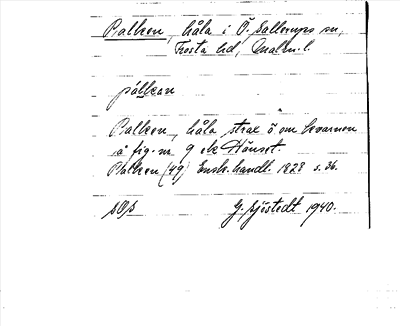 Balken, håla i Ö. Sallerups sn,
Frosta hd, Malm. l.
pállkan
Balken, håla strax ö om kvarnen
å fig. nr 9 ek Hänset.
Balken (49) Ensk. handl. 1828 s. 36.
G. Sjöstedt 1940.